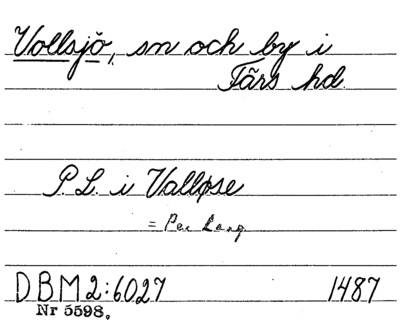 Vollsjö, sn och by i
Färs hd.
P. L. i Valløse
= Per Lang
DBM2:6027 1487
Nr 5598.